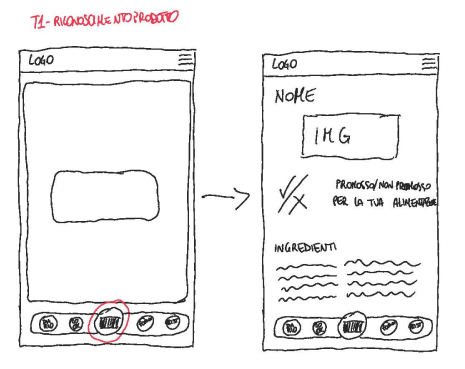 T1-RICONOSCIMENTO PRODOTTO
LOGO
LOGO
NOME
IMG
PROMOSSO/NON PROMOSSO
PER LA TUA
INGREDIENTI